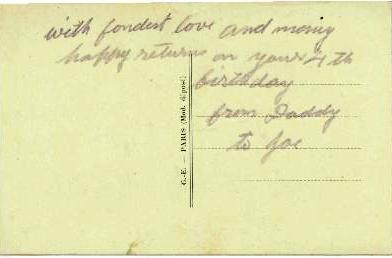 with fondest love and many
happy returns on your 4th
birthday
from Daddy
to Joe
G.-E. - PARIS (Mod. dépost)